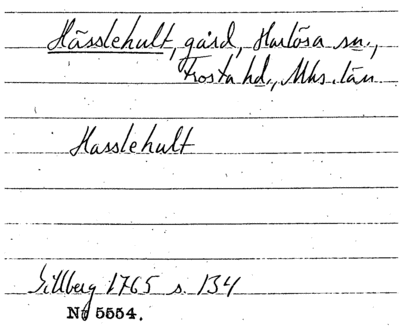 Hässlehult, gård, Harlösa sn.,
Frosta hd., Mhs. län
Hasslehult
Gillberg 1765 s. 134
No 5554.